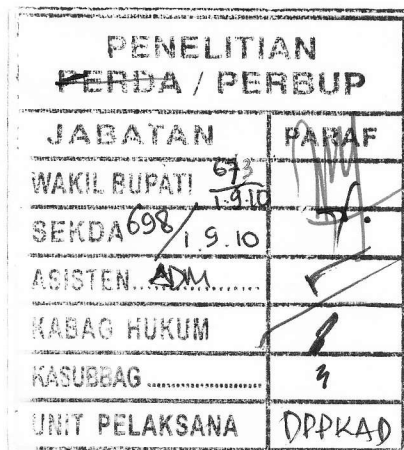 PENELITIAN
PERDA / PERBUP
JABATAN PARAF
WAKIL BUPATI 673
1.9.10
SEKDA 698/1.9.10
ASISTEN..ADM........
KABAG HUKUM
KASUBBAG ................
UNIT PELAKSANA DPPKAD